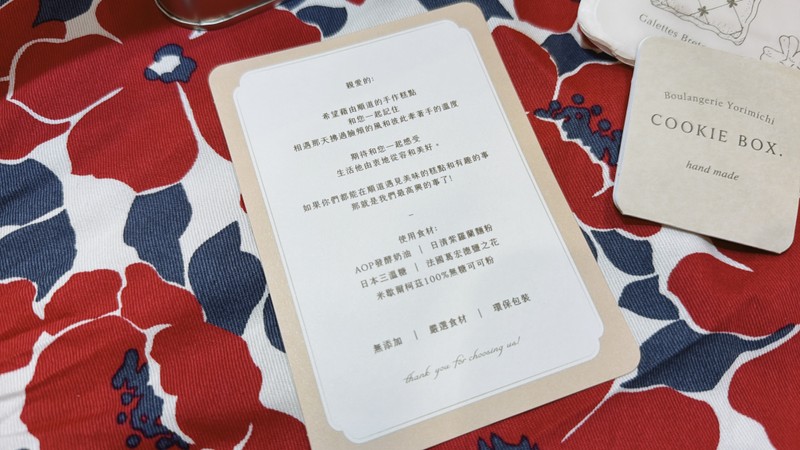 親愛的:
希望藉由順道的手作糕點
和您一起記住
相遇那天拂過臉頰的風和彼此牽著手的溫度
期待和您一起感受
生活他由衷地從容和美好。
如果你們都能在順道遇見美味的糕點和有趣的事
那就是我們最高興的事了!
–
使用食材:
AOP發酵奶油 | 日清紫羅蘭麵粉
日本三溫糖 | 法國葛宏德鹽之花
米歇爾柯茲100%無糖可可粉
無添加 | 嚴選食材 | 環保包裝
thank you for choosing us!
Galettes Bret
Boulangerie Yorimichi
COOKIE BOX.
hand made